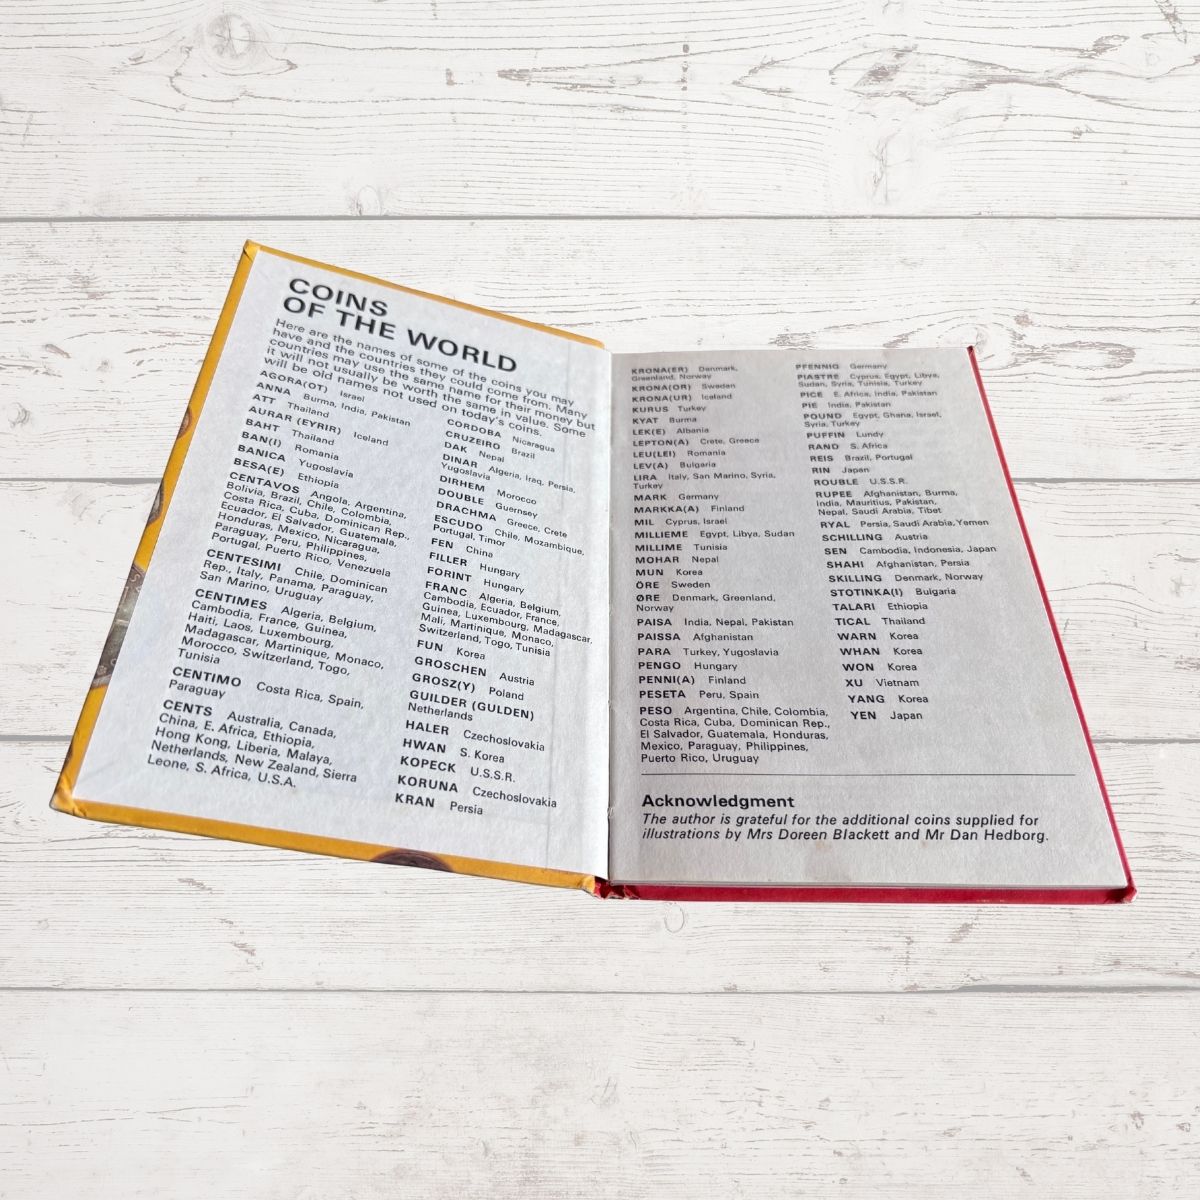 COINS
OF THE WORLD
Here are the names of some of the coins you may
have and the countries they could come from. Many
countries may use the same name for their money but
it will not usually be worth the same in value. Some
will be old names not used on today's coins.
AGORA(OT) Israel
ANNA Burma, India, Pakistan
ATT Thailand
AURAR (EYRIR) Iceland
BAHT Thailand
BAN(I) Romania
BANICA Yugoslavia
BESA(E) Ethiopia
CENTAVOS Angola, Argentina,
Bolivia, Brazil, Chile, Colombia,
Costa Rica, Cuba, Dominican Rep.,
Ecuador, El Salvador, Guatemala,
Honduras, Mexico, Nicaragua,
Paraguay, Peru, Philippines,
Portugal, Puerto Rico, Venezuela
CENTESIMI Chile, Dominican
Rep., Italy, Panama, Paraguay,
San Marino, Uruguay
CENTIMES Algeria, Belgium,
Cambodia, France, Guinea,
Haiti, Laos, Luxembourg,
Madagascar, Martinique, Monaco,
Morocco, Switzerland, Togo,
Tunisia
CENTIMO Costa Rica, Spain,
Paraguay
CENTS Australia, Canada,
China, E. Africa, Ethiopia,
Hong Kong, Liberia, Malaya,
Netherlands, New Zealand, Sierra
Leone, S. Africa, U.S.A.
CORDOBA Nicaragua
CRUZEIRO Brazil
DAK Nepal
DINAR Algeria, Iraq, Persia,
Yugoslavia
DIRHEM Morocco
DOUBLE Guernsey
DRACHMA Greece, Crete
ESCUDO Chile, Mozambique,
Portugal, Timor
FEN China
FILLER Hungary
FORINT Hungary
FRANC Algeria, Belgium,
Cambodia, Ecuador, France,
Guinea, Luxembourg, Madagascar,
Mali, Martinique, Monaco,
Switzerland, Togo, Tunisia
FUN Korea
GROSCHEN Austria
GROSZ(Y) Poland
GUILDER (GULDEN)
Netherlands
HALER Czechoslovakia
HWAN S. Korea
KOPECK U.S.S.R.
KORUNA Czechoslovakia
KRAN Persia
KRONA(ER) Denmark,
Greenland, Norway
KRONA(OR) Sweden
KRONA(UR) Iceland
KURUS Turkey
KYAT Burma
LEK(E) Albania
LEPTON(A) Crete, Greece
LEU(LEI) Romania
LEV(A) Bulgaria
LIRA Italy, San Marino, Syria,
Turkey
MARK Germany
MARKKA(A) Finland
MIL Cyprus, Israel
MILLIEME Egypt, Libya, Sudan
MILLIME Tunisia
MOHAR Nepal
MUN Korea
ÖRE Sweden
ØRE Denmark, Greenland,
Norway
PAISA India, Nepal, Pakistan
PAISSA Afghanistan
PARA Turkey, Yugoslavia
PENGO Hungary
PENNI(A) Finland
PESETA Peru, Spain
PESO Argentina, Chile, Colombia,
Costa Rica, Cuba, Dominican Rep.,
El Salvador, Guatemala, Honduras,
Mexico, Paraguay, Philippines,
Puerto Rico, Uruguay
PFENNIG Germany
PIASTRE Cyprus, Egypt, Libya,
Sudan, Syria, Tunisia, Turkey
PICE E. Africa, India, Pakistan
PIE India, Pakistan
POUND Egypt, Ghana, Israel,
Syria, Turkey
PUFFIN Lundy
RAND S. Africa
REIS Brazil, Portugal
RIN Japan
ROUBLE U.S.S.R.
RUPEE Afghanistan, Burma,
India, Mauritius, Pakistan,
Nepal, Saudi Arabia, Tibet
RYAL Persia, Saudi Arabia, Yemen
SCHILLING Austria
SEN Cambodia, Indonesia, Japan
SHAHI Afghanistan, Persia
SKILLING Denmark, Norway
STOTINKA(I) Bulgaria
TALARI Ethiopia
TICAL Thailand
WARN Korea
WHAN Korea
WON Korea
XU Vietnam
YANG Korea
YEN Japan
Acknowledgment
The author is grateful for the additional coins supplied for
illustrations by Mrs Doreen Blackett and Mr Dan Hedborg.